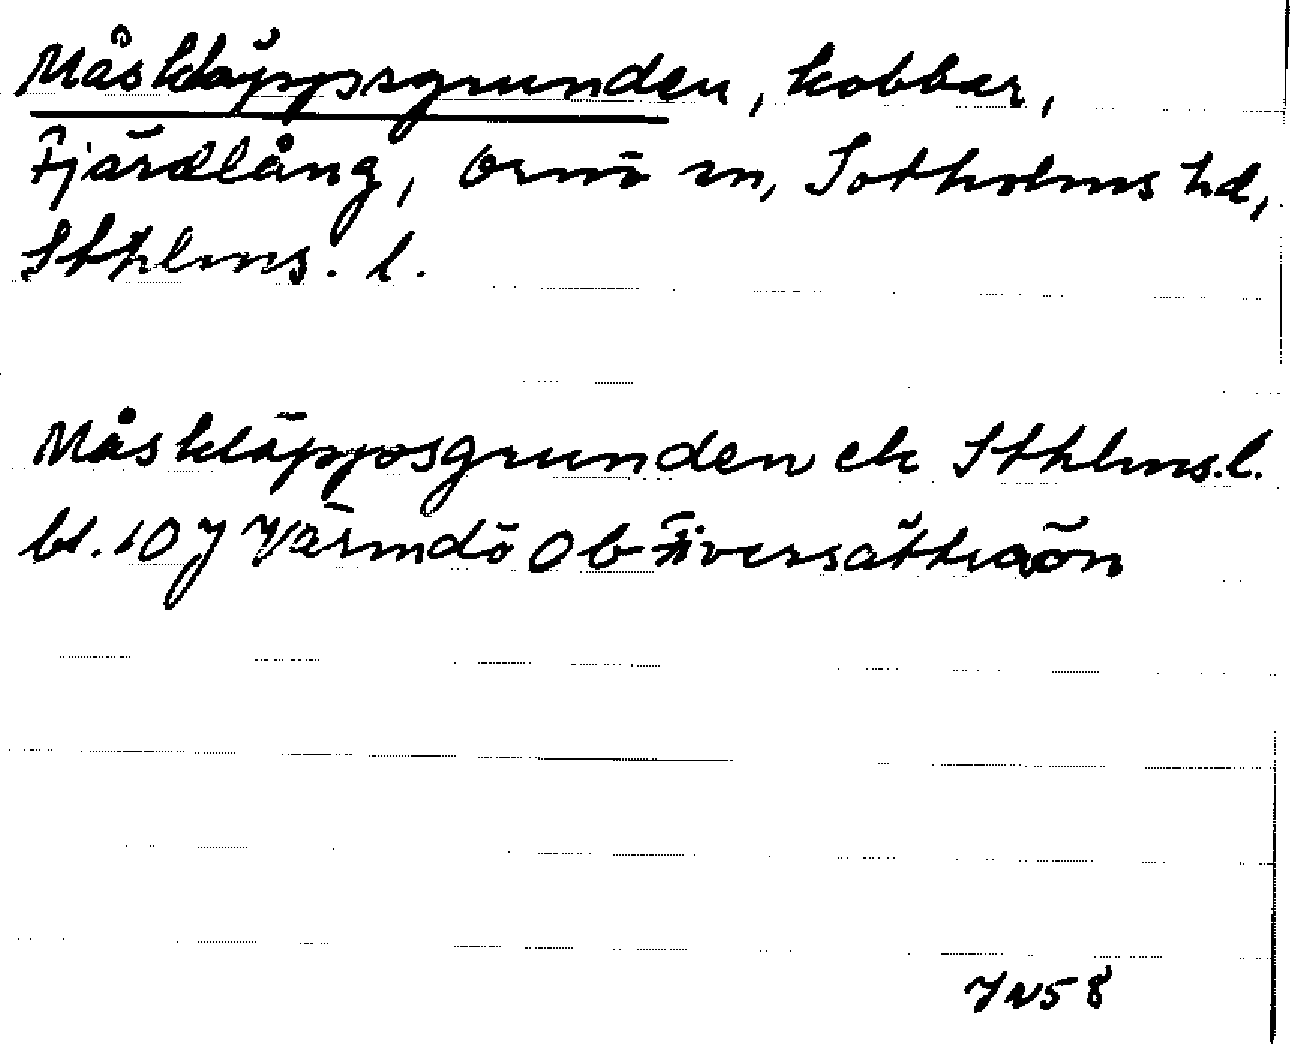 Måskläppsgrunden, kobbar,
Fjärdlång, Ornö sn, Sotholms hd,
Sthlms. l.
Måskläppsgrunden ek Sthlms.l.
bl. 10 J Värmdö Ob Fiversätraön
JN58